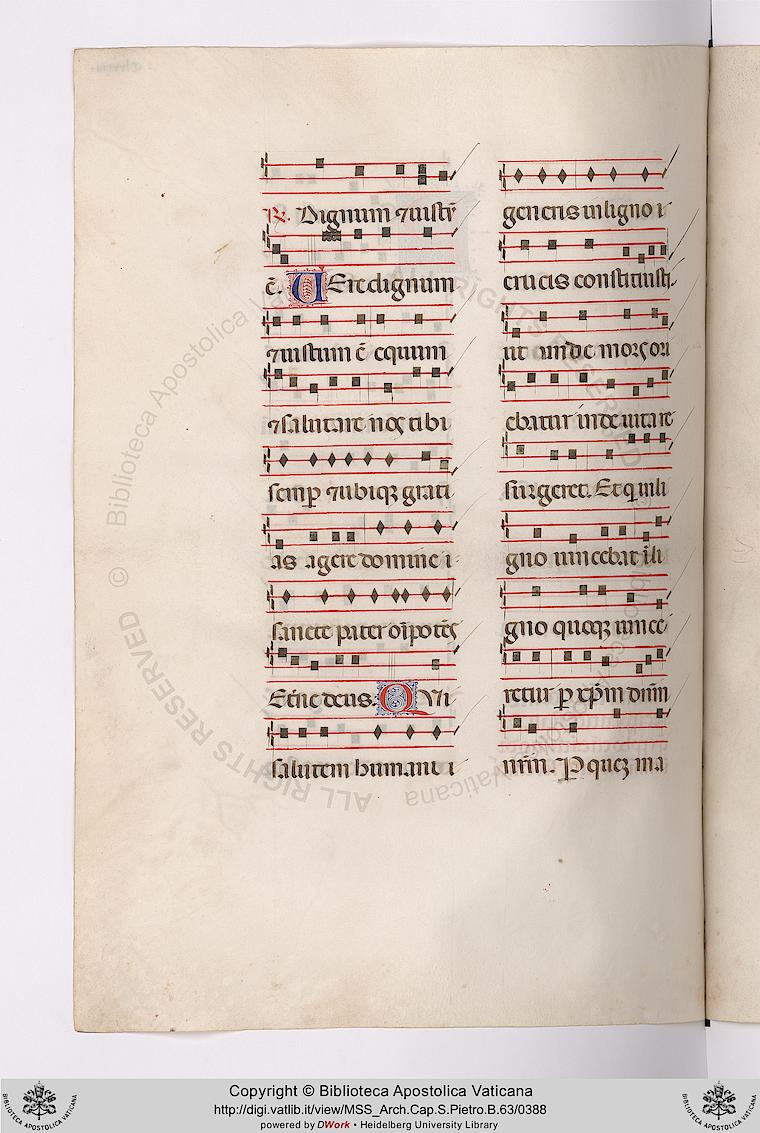 ℟. Dignum ⁊ iustū
ē. VEre dignum
⁊ iustum ē equum
⁊ salutare nos tibi
semp̄ ⁊ ubiqꝫ grati
as agere domine
sancte pater oīpotēs
Eterne deus. QVi
salutem humani
generis in ligno
crucis constituisti.
ut unde mors ori
ebatur inde uita re
surgeret. Et qui in li
gno uincebat ī li
gno quoqꝫ uince
retur p xp̄m dn̄m
nr̄m. P queꝫ ma
BIBLIOTECA APOSTOLICA VATICANA
Copyright © Biblioteca Apostolica Vaticana
http://digi.vatlib.it/view/MSS_Arch.Cap.S.Pietro.B.63/0388
powered by DWork • Heidelberg University Library
BIBLIOTECA APOSTOLICA VATICANA
© Biblioteca Apostolica Vaticana ALL RIGHTS RESERVED © Biblioteca Apostolica Vaticana ALL RIGHTS RESERVED